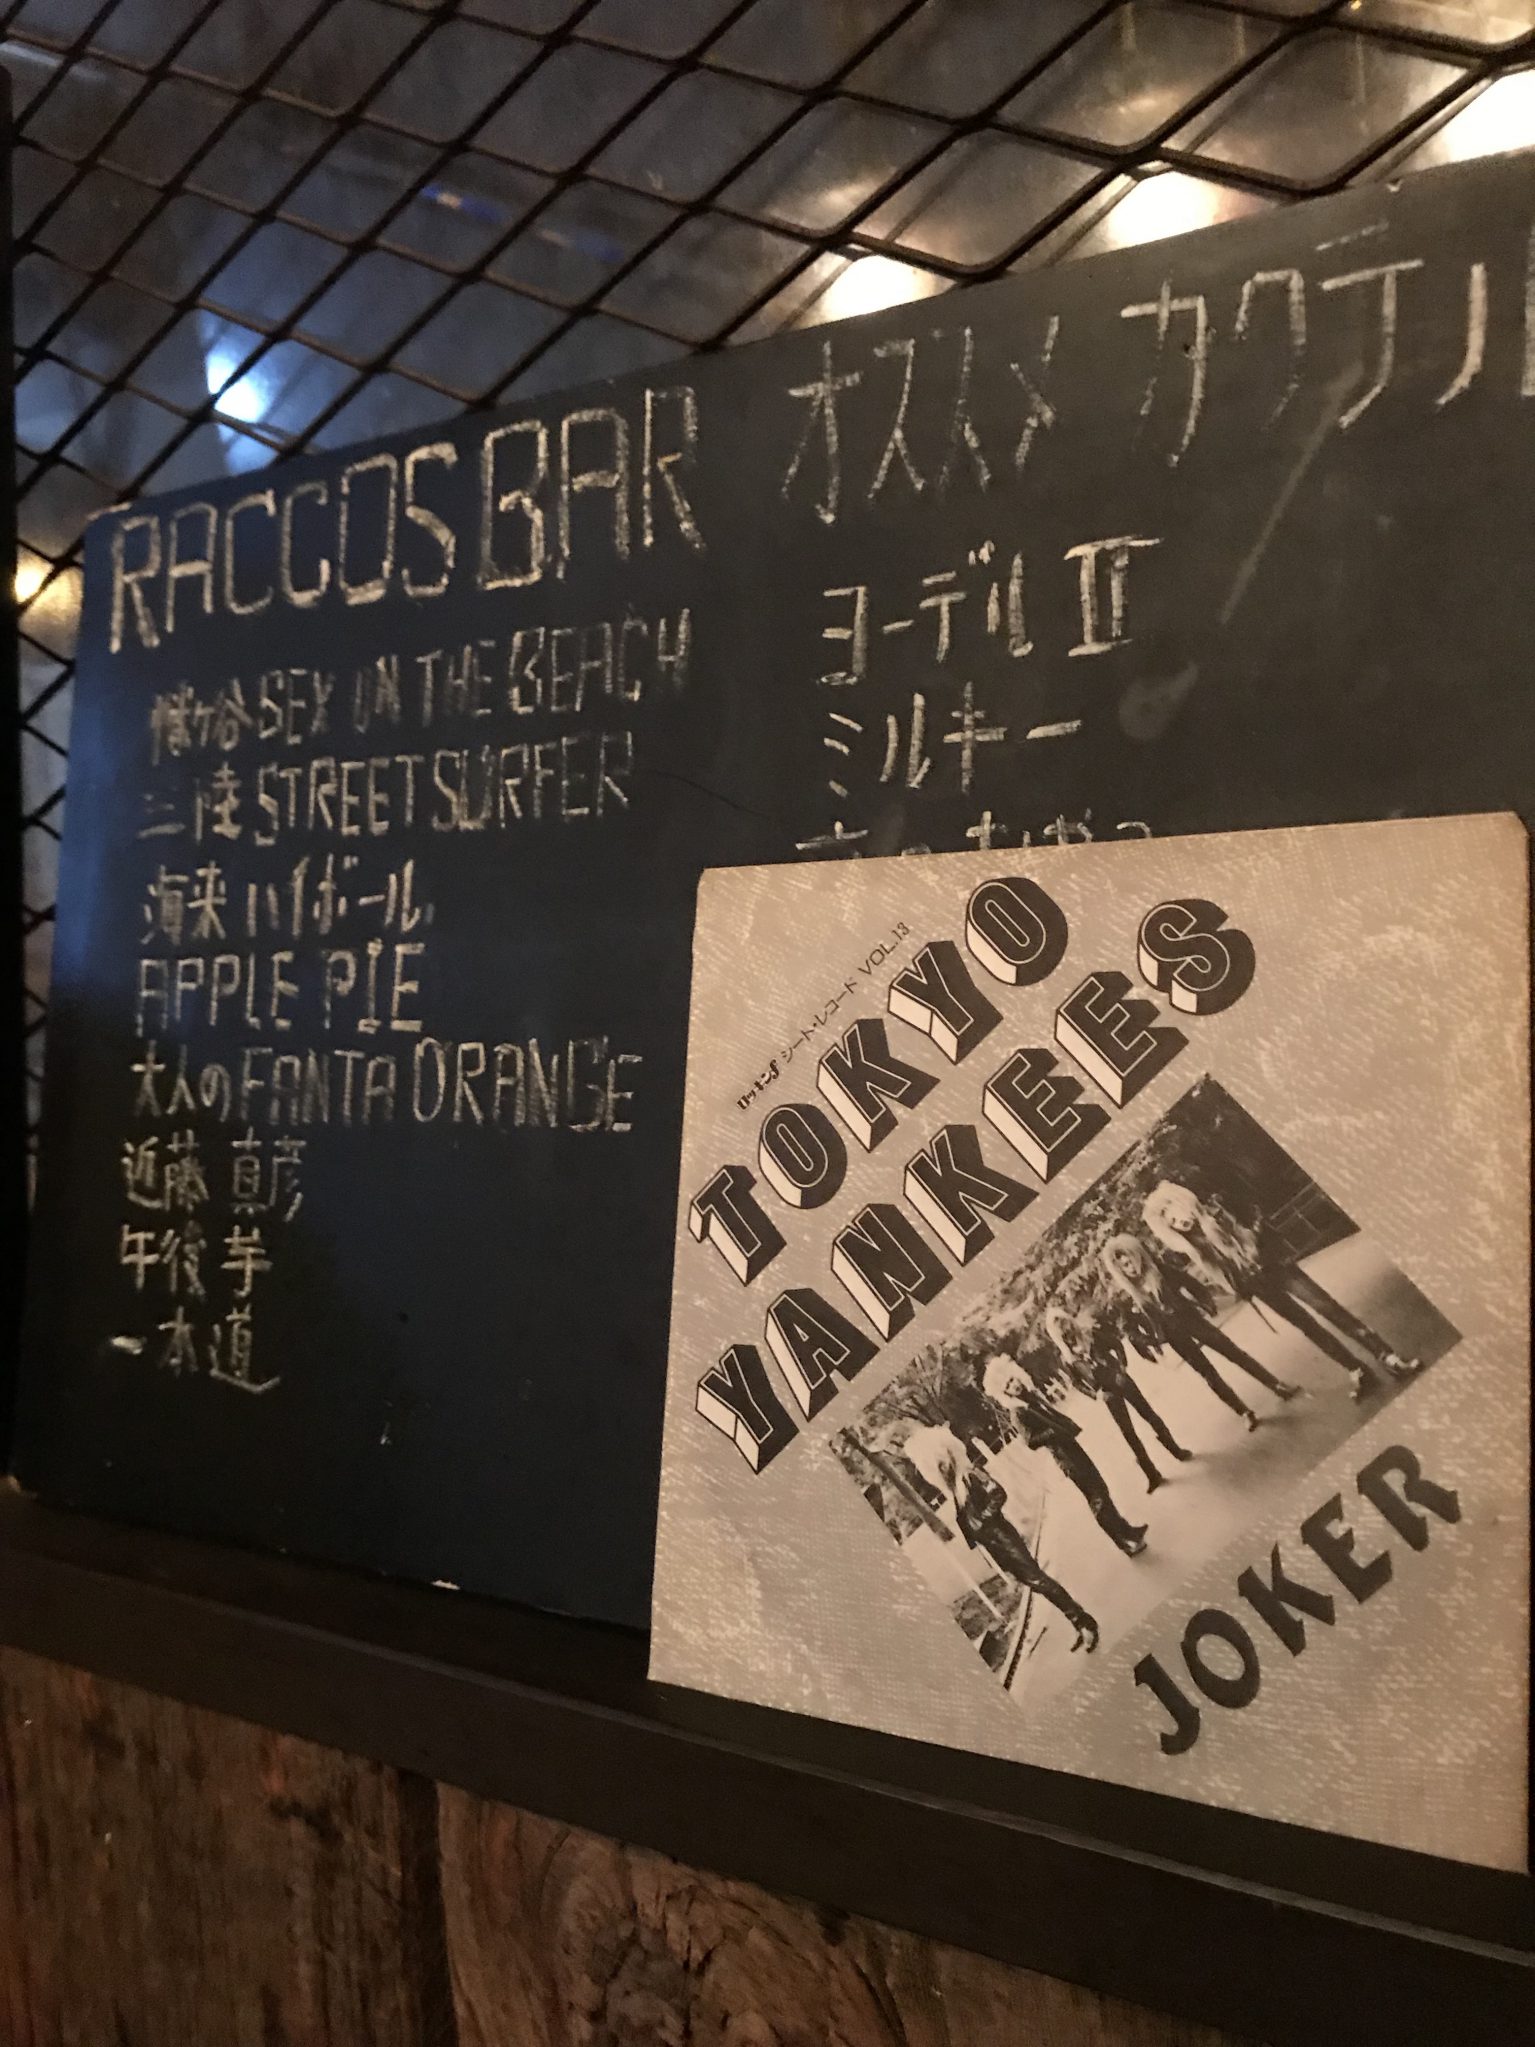 RACCOS BAR オススメ カクテル
幡ヶ谷 SEX ON THE BEACH
三陸 STREET SURFER
海来 ハイボール
APPLE PIE
大人の FANTA ORANGE
近藤 真彦
午後 芋
一本道
ヨーデル II
ミルキー
ロッキンf シート・レコード VOL.13
TOKYO
YANKEES
JOKER